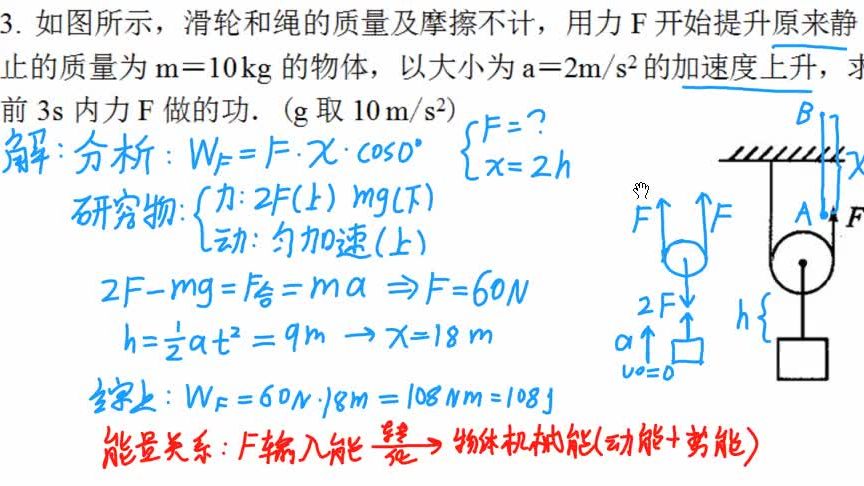 3. 如图所示，滑轮和绳的质量及摩擦不计，用力 F 开始提升原来静
止的质量为 m＝10kg 的物体，以大小为 a＝2m/s² 的加速度上升，求
前 3s 内力 F 做的功．(g 取 10 m/s²)
解：分析：W_F = F·x·cos0° { F = ? x = 2h
研究物：{ 力：2F(上) mg(下)
动：匀加速(上)
2F－mg = F合 = ma ⇒ F = 60N
h = ½at² = 9m → x = 18m
综上：W_F = 60N·18m = 108Nm = 108J
能量关系：F输入能 转化→ 物体机械能(动能+势能)
F F
2F
a
v0=0
B
x
A F
h